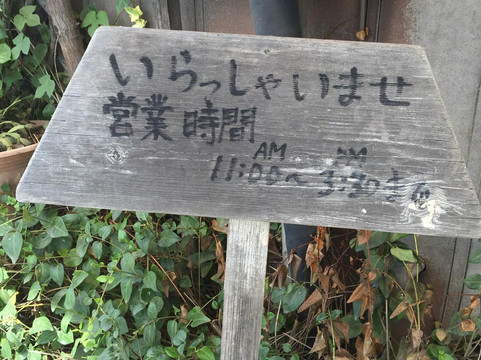 いらっしゃいませ
営業時間
AM PM
11:00〜3:30まで